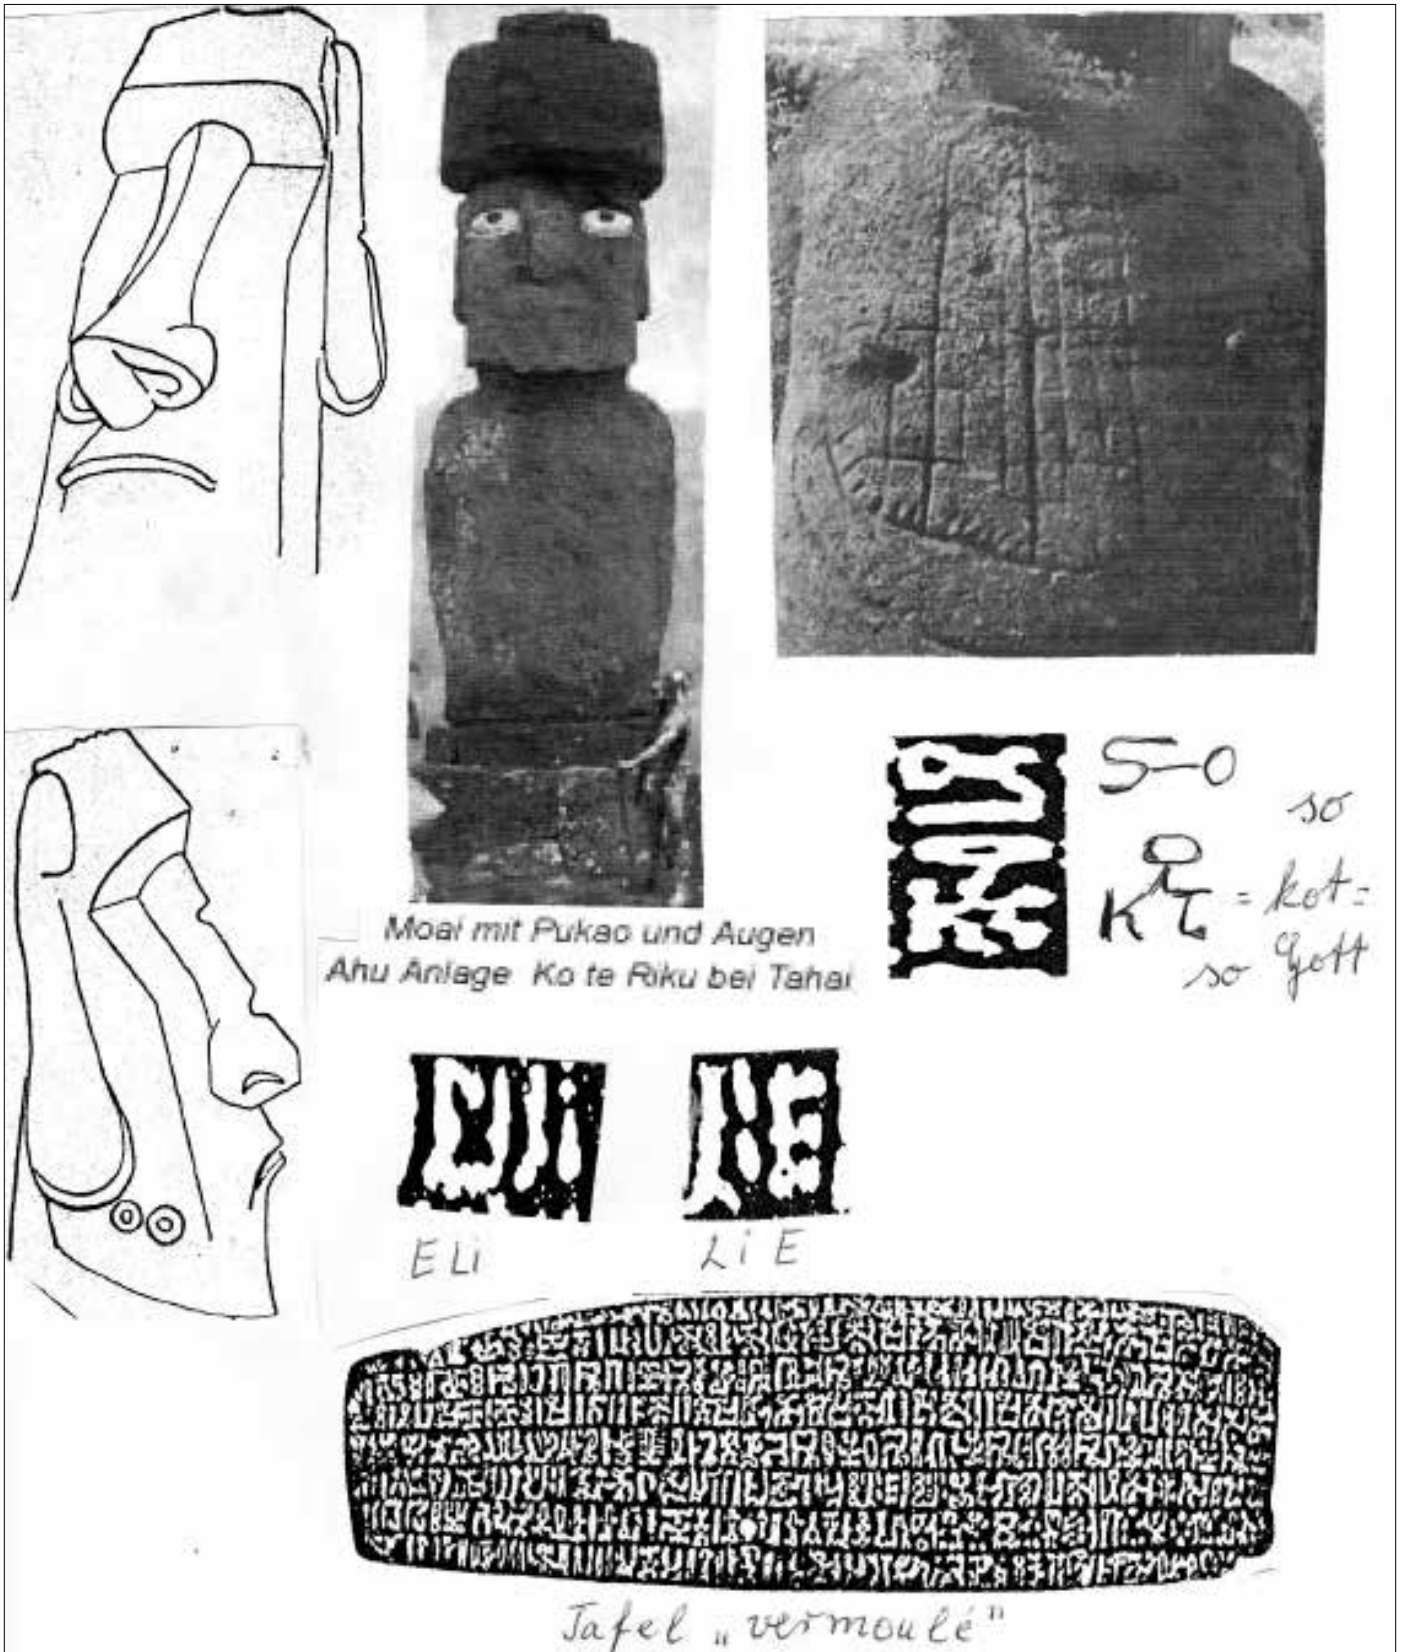 Moai mit Pukao und Augen
Ahu Anlage Ko te Riku bei Tahai
S-O
so
K T = kot =
so Gott
E Li
Li E
Tafel „vermoulé"